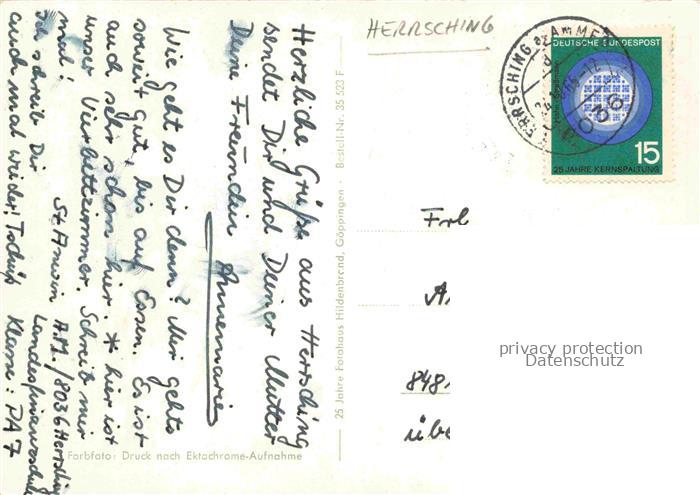 HERRSCHING
HERRSCHING a. AMMER
8036
DEUTSCHE BUNDESPOST
15
25 JAHRE KERNSPALTUNG
Herzliche Grüße aus Herrsching
sendet Dir und Deiner Mutter
Deine Freundin
Annemarie
Wie geht es Dir denn? Mir gehts
soweit gut, bis auf Essen. Es ist
auch sehr schön hier. * hier ist
unser Vierbettzimmer. Schreib mir
mal!
Ich schreib Dir
auch mal wieder! Tschüß
St. Anwin A.M./8036 Herrsching
Landesfinanzschule
Klasse: PA 7
25 Jahre Fotohaus Hildenbrand, Göppingen Bestell-Nr. 35 523 F
Frl
848
übe
Farbfoto: Druck nach Ektachrome-Aufnahme
privacy protection
Datenschutz